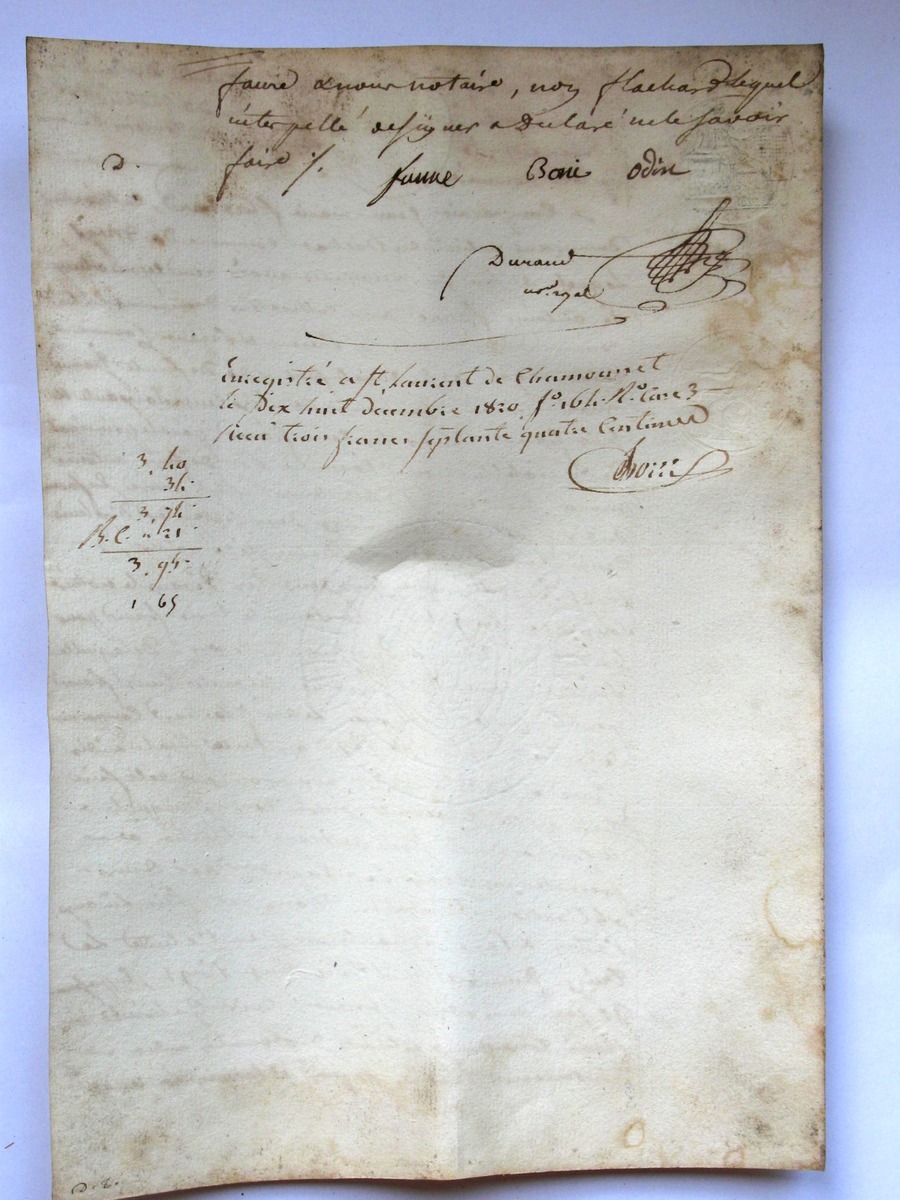 faure & nous notaire, non flachard lequel
interpellé de signer a declaré ne le savoir
faire ./.
D.
faure Boni odin
Durand
no.re royal
Enregistré a St. Laurent de Chamousset
le Dix huit décembre 1820 f.o 164 R.o Case 3
Reçu trois francs septante quatre Centimes
3. 40
34
3. 74
21
3. 95
1 65
D.